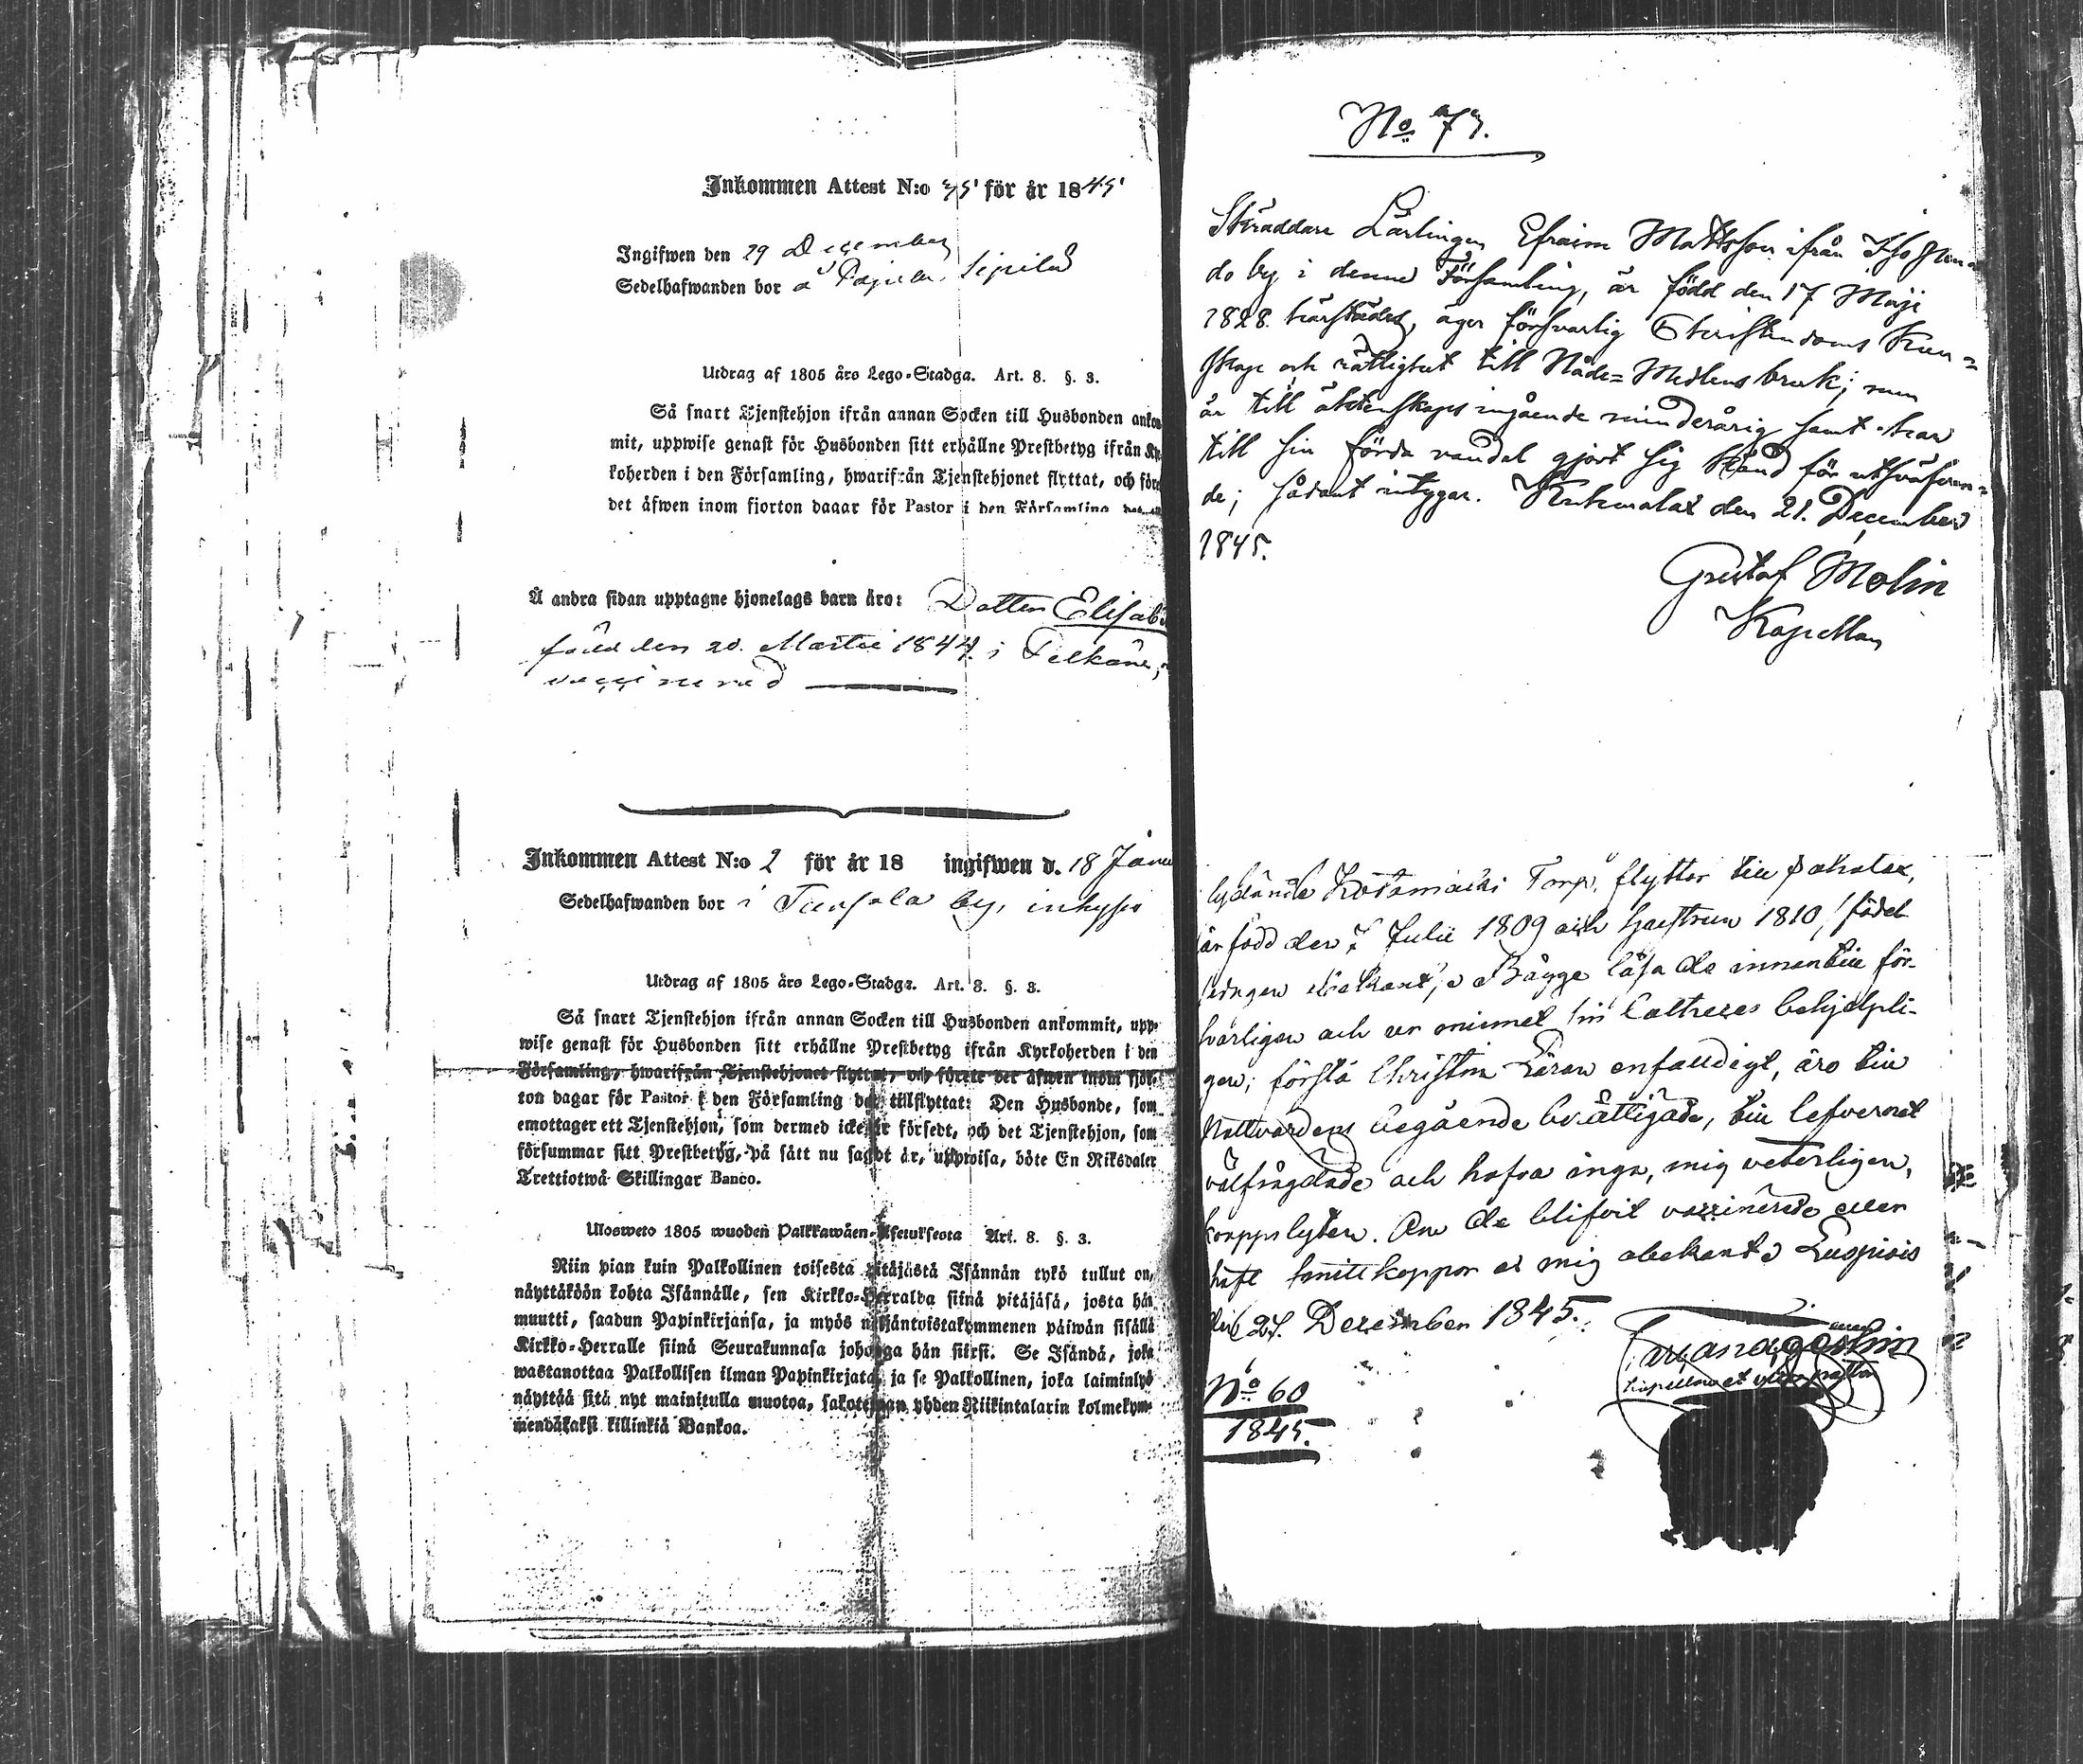 Inkommen Attest N:o 75 för år 1845
Ingifwen den 29 December
Sedelhafwanden bor å Pajula Sipilä
Utdrag af 1805 års Lego-Stadga. Art. 8. §. 3.
Så snart Tjenstehjon ifrån annan Socken till Husbonden ankom
mit, uppwise genast för Husbonden sitt erhållne Prestbetyg ifrån Ky
koherden i den Församling, hwarifrån Tjenstehjonet flyttat, och före
det äfwen inom fjorton dagar för Pastor i den Församling
Å andra sidan upptagne hjonelags barn äro: Dottern Elisab
född den 20. Martii 1844 i Pelkäne,
vaccinerad
Inkommen Attest N:o 2 för år 18 ingifwen d. 18 Janu
Sedelhafwanden bor i by, inhyses
Utdrag af 1805 års Lego-Stadga. Art. 8. §. 3.
Så snart Tjenstehjon ifrån annan Socken till Husbonden ankommit, upp-
wise genast för Husbonden sitt erhållne Prestbetyg ifrån Kyrkoherden i den
Församling, hwarifrån Tjenstehjonet flyttat, och förete det äfwen inom fjor-
ton dagar för Pastor i den Församling det tillflyttat: Den Husbonde, som
emottager ett Tjenstehjon, som dermed icke är försedt, och det Tjenstehjon, som
försummar sitt Prestbetyg, på sätt nu sagdt är, uppwisa, böte En Riksdaler
Trettiotwå Skillingar Banco.
Ulosweto 1805 wuoden Palkkawäen-Asetuksesta Art. 8. §. 3.
Niin pian kuin Palkollinen toisesta pitäjästä Isännän tykö tullut on,
näyttäköön kohta Isännälle, sen Kirkko-Herralda siinä pitäjäsä, josta hän
muutti, saadun Papinkirjansa, ja myös neljäntoistakymmenen päiwän sisällä
Kirkko-Herralle siinä Seurakunnasa johonga hän siirsi. Se Isändä, joka
wastanottaa Palkollisen ilman Papinkirjata, ja se Palkollinen, joka laiminlyö
näyttää sitä nyt mainitulla muotoa, sakotetaan yhden Riikintalarin kolmekym-
mendäkaksi killinkiä Bankoa.
No 73.
Skräddare Lärlingen Efraim Mattsson ifrån
do by i denne Församling, är född den 17 Maji
1828. härstädes, äger försvarlig Christendoms Kun-
skap och rättighet till Nåde-Medlens bruk; men
är till äktenskaps ingående minderårig samt har
till sin förda vandel gjort sig känd för utsväfvan-
de; sådant intygar. Kuhmalax den 21. December
1845.
Gustaf Molin
Kapellan
lydande Kotamäki Torp, flyttar till Sahalax,
är född den 7 Julii 1809 och hustrun 1810, född
obekant; Bägge läsa de innantill för-
svarligen och ur minnet sin Catheces behjelpli-
gen; förstå Christna Läran enfaldigt, äro till
Nattvardens begående berättigade, till lefvernet
välfrägdade och hafva inga, mig veterligen,
kroppslyten. Om de blifvit vaccinerade eller
haft smittkoppor är mig obekant Luopiois
den 27. December 1845.
No 60
1845.